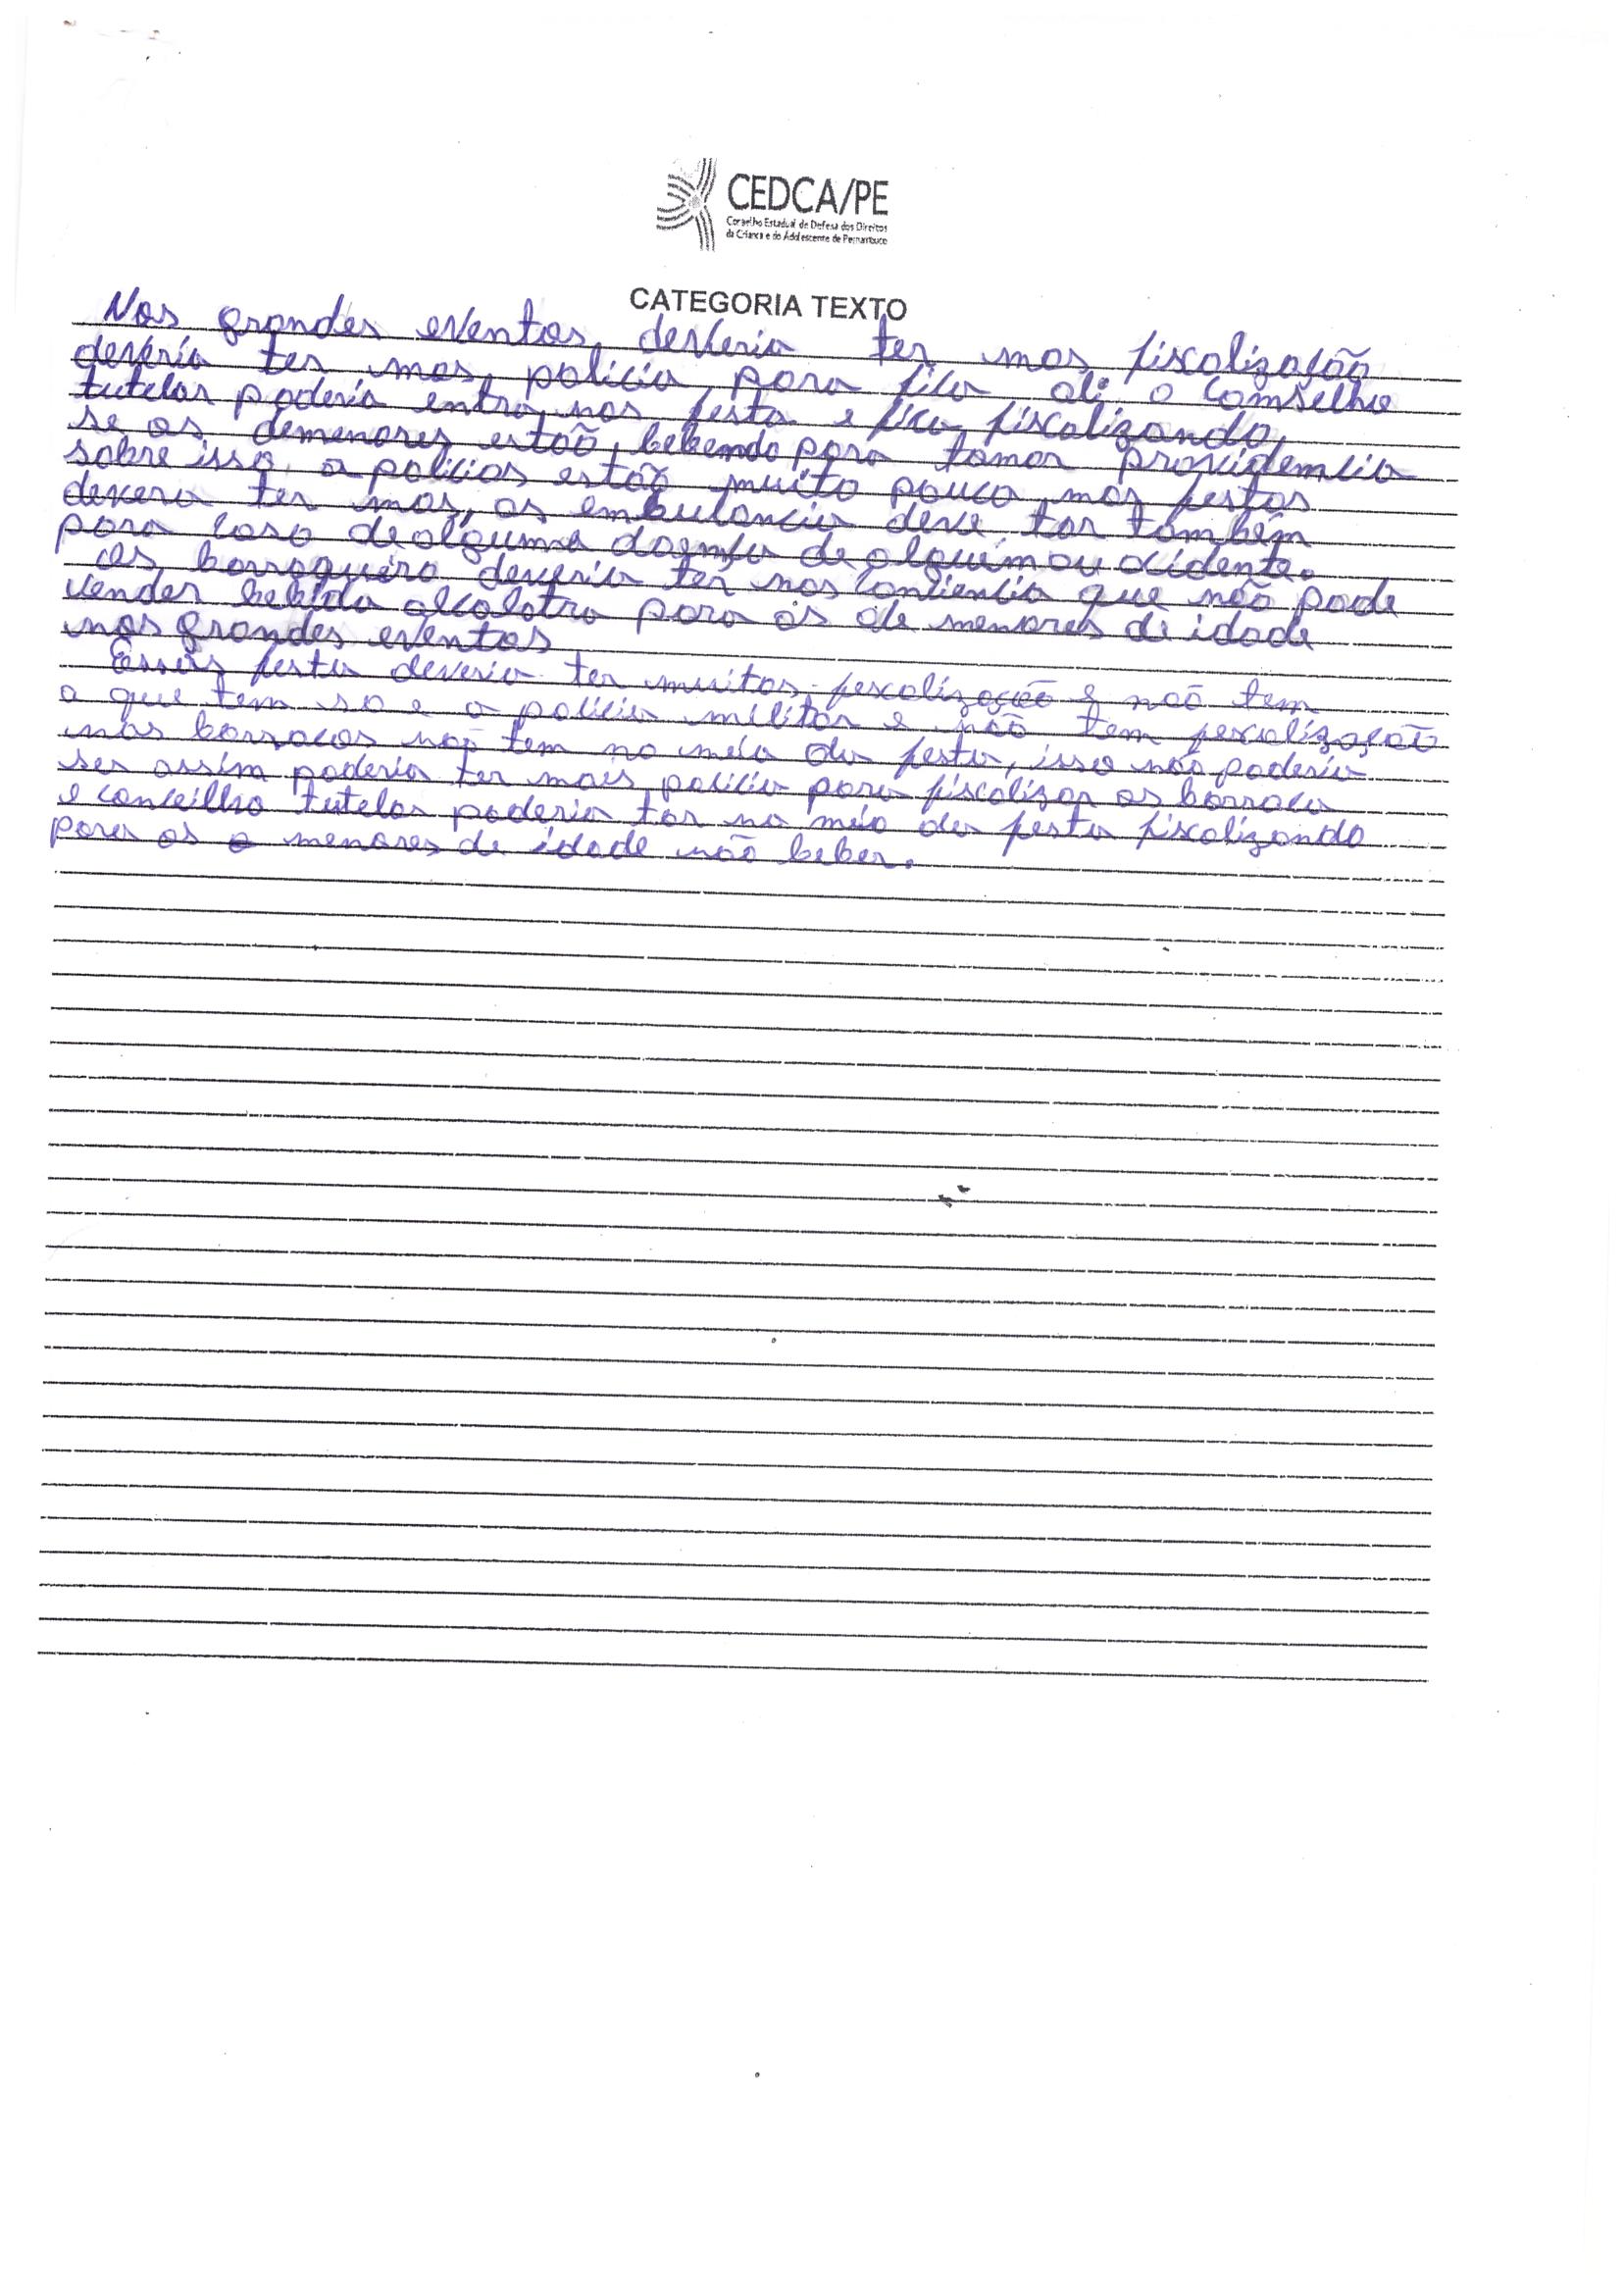 CEDCA/PE
Conselho Estadual de Defesa dos Direitos
da Criança e do Adolescente de Pernambuco
CATEGORIA TEXTO
Nos grandes eventos deveria ter mas fiscalização
deveria ter mas policia para fica ali o Comselho
tutelar poderia entra nas festa e fica fiscalizando
se os demenores estão bebemdo para tomar providemcia
sobre isso, a policias estão muito pouco nas festas
devera ter mas, as embulancia deve tar também
para caso de alguma doemça de alguém ou acidente.
Os barraqueiro deveria ter mas conciencia que não pode
vender bebida alcolotra para os de menores de idade
nos grandes eventos
Essas festa deveria ter muitas fescalização e não tem
a que tem so e a policia militar e não tem fescalização
nas barracas não tem no meio da festa, isso não poderia
ser assim poderia ter mais policia para fiscalizar as barraca
e conceilho tutelar poderia tar no meio da festa fiscalizando
para os menores de idade não beber.